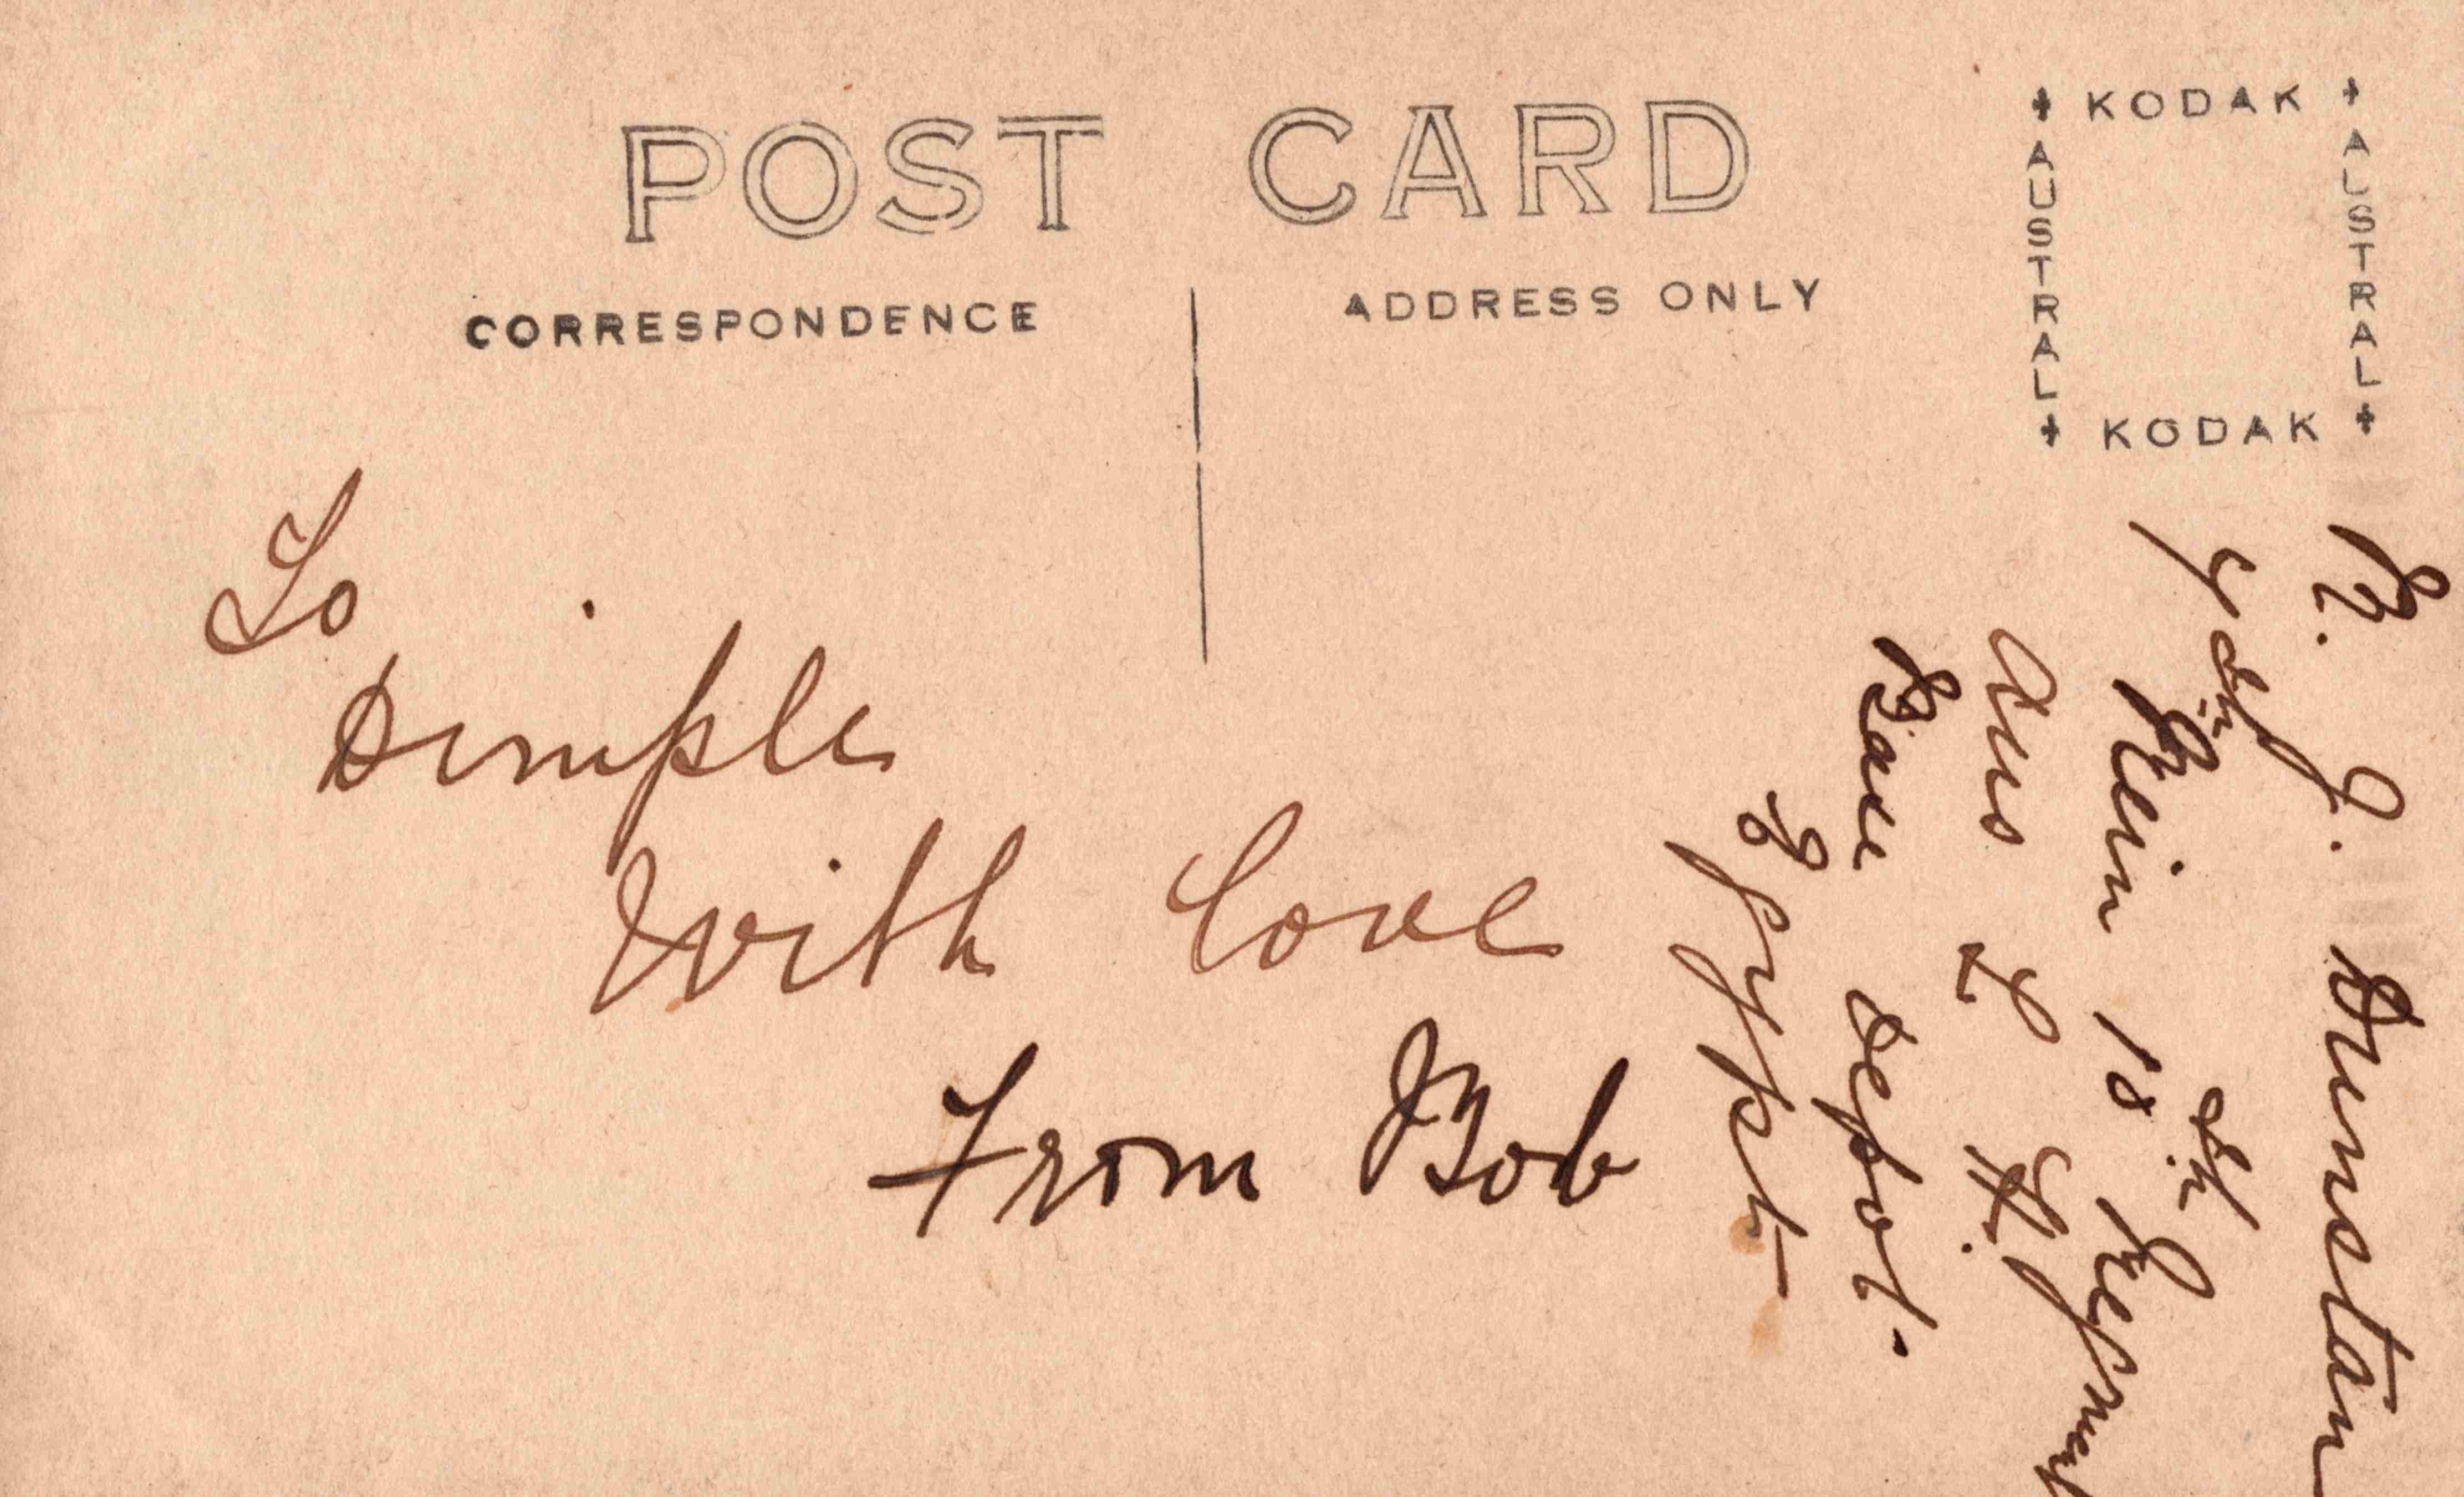 POST CARD
CORRESPONDENCE
ADDRESS ONLY
KODAK
AUSTRAL
AUSTRAL
KODAK
To
Dimple
With love
From Bob
R. J. Dunstan
4th Rein 18th Regiment
Aus L H.
Base Depot.
Egypt